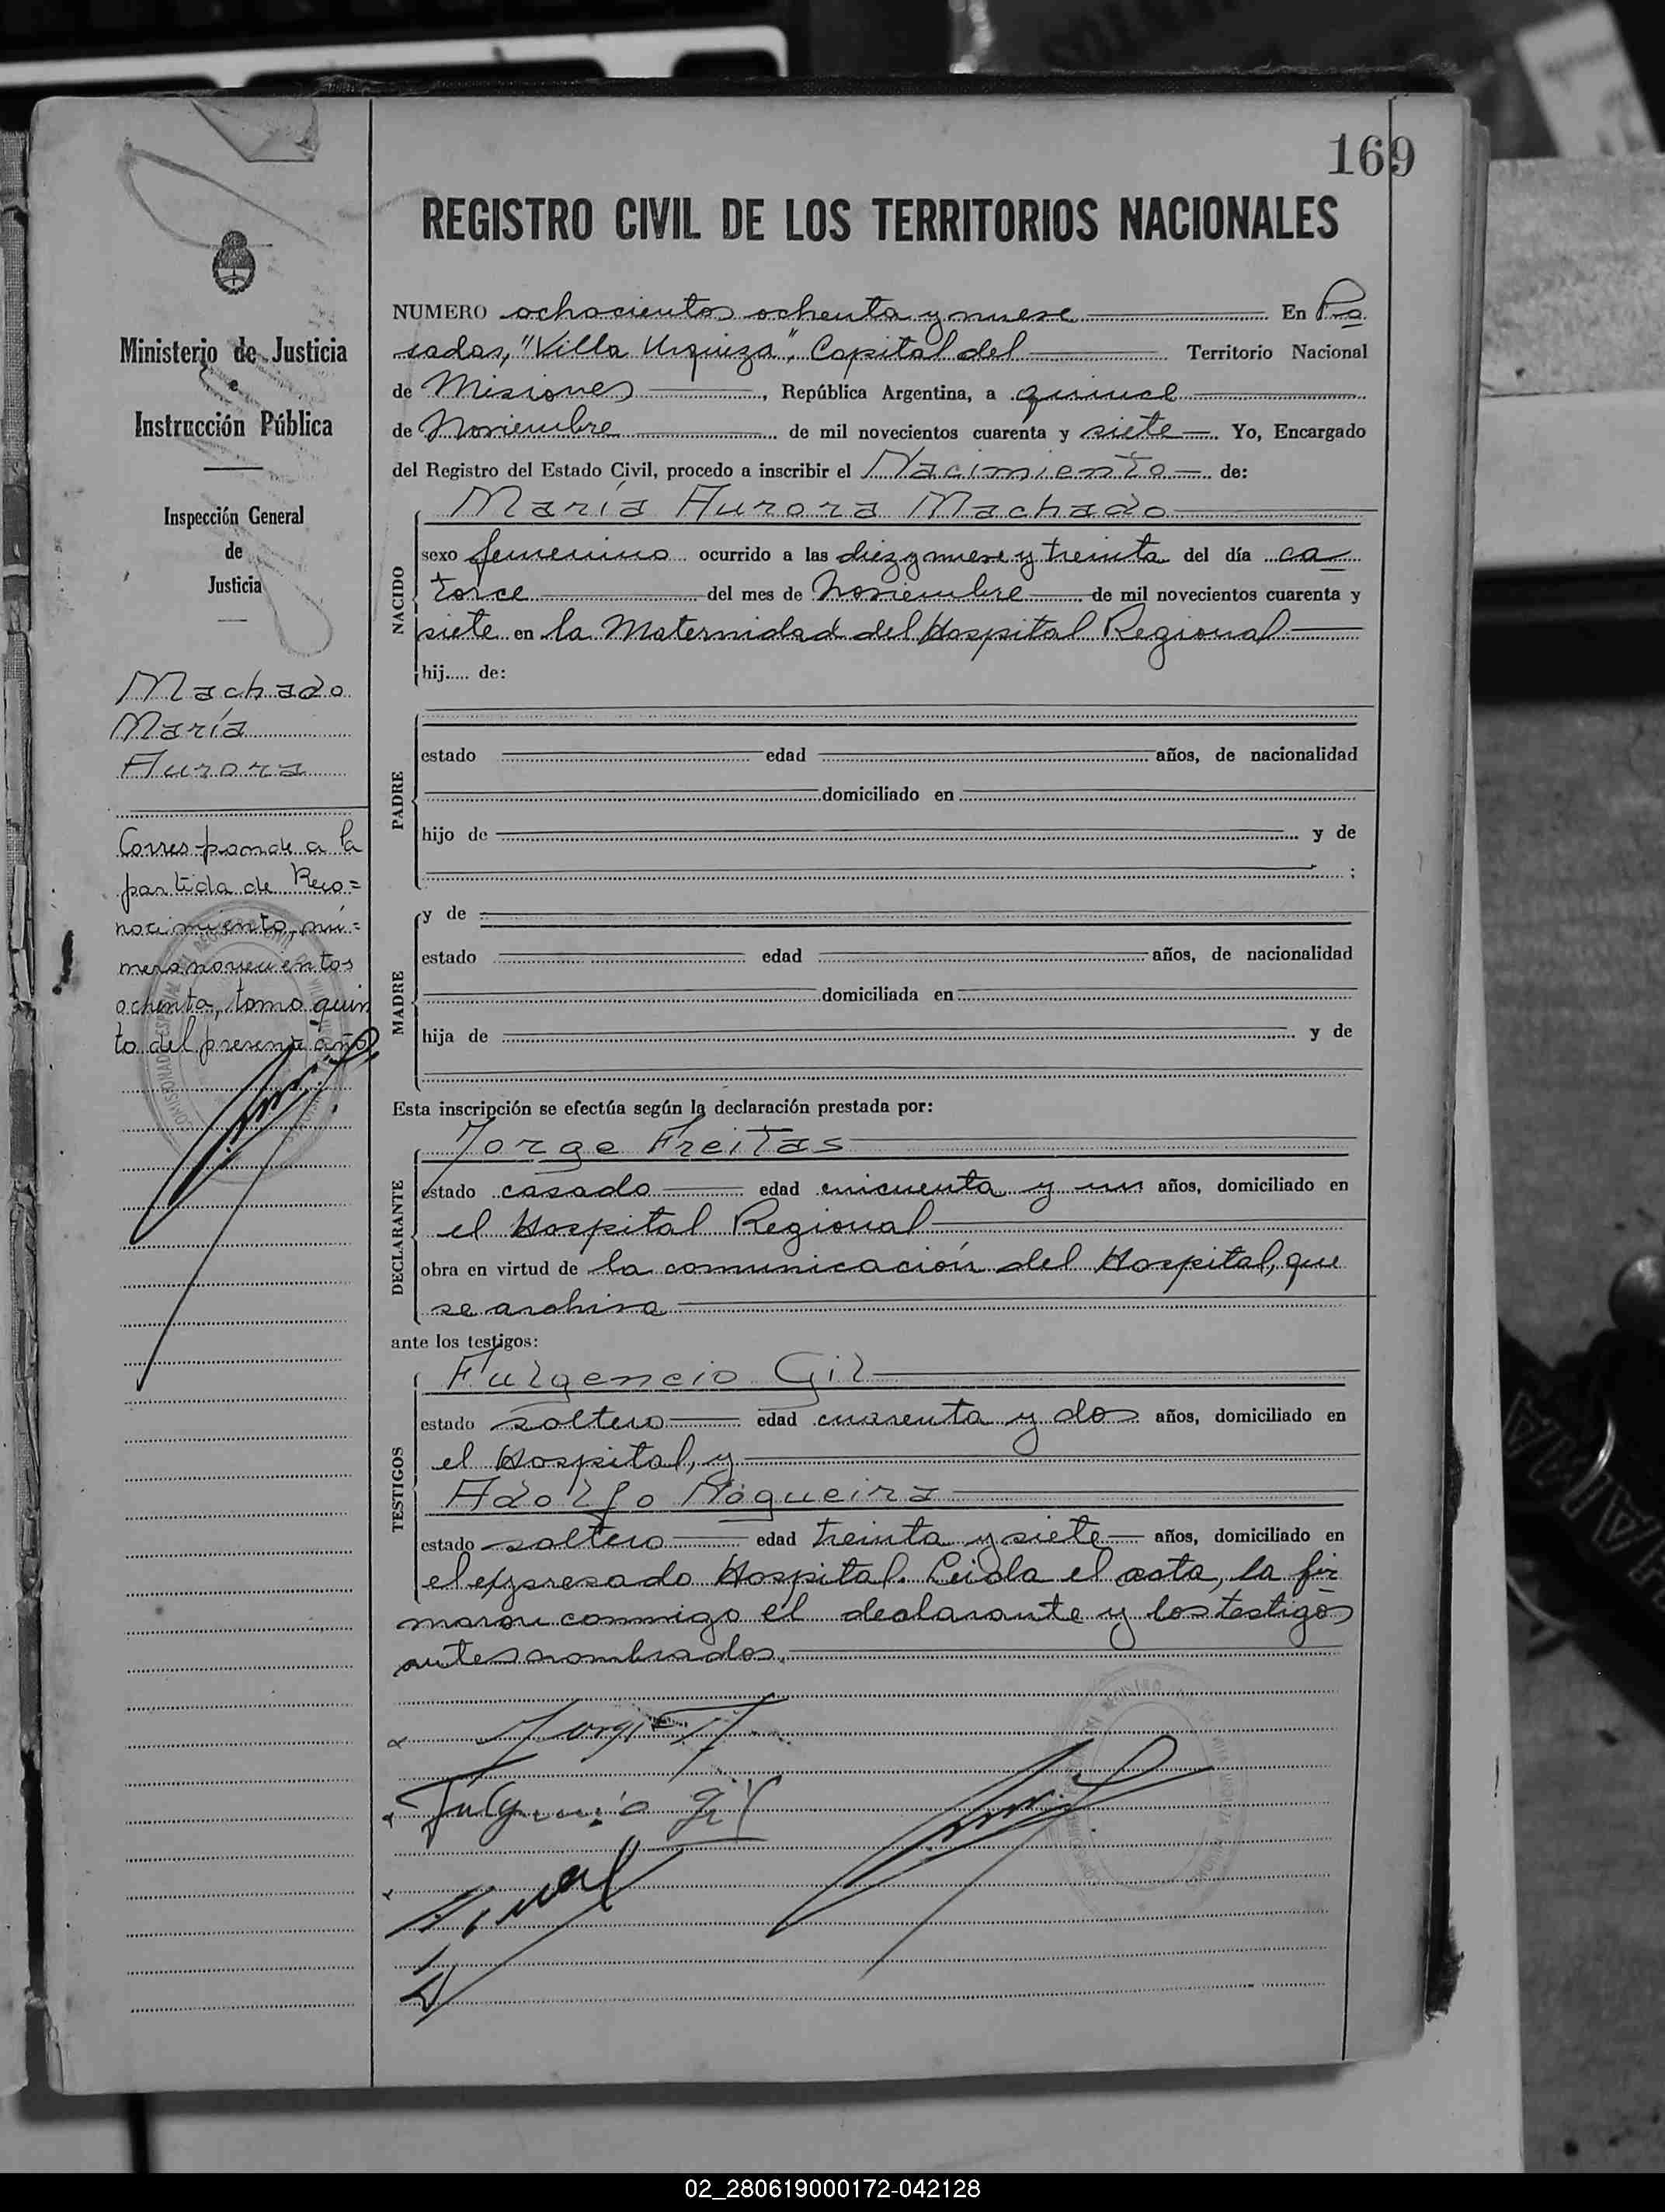 169
REGISTRO CIVIL DE LOS TERRITORIOS NACIONALES
Ministerio de Justicia
e
Instrucción Pública
Inspección General
de
Justicia
Machado
María
Aurora
Corresponde a la
partida de Reco=
nocimiento, nú=
mero novecientos
ochenta, tomo quin
to del presente año
NUMERO ochocientos ochenta y nueve En Po
sadas, "Villa Urquiza", Capital del Territorio Nacional
de Misiones, República Argentina, a quince
de Noviembre de mil novecientos cuarenta y siete. Yo, Encargado
del Registro del Estado Civil, procedo a inscribir el Nacimiento de:
María Aurora Machado
NACIDO
sexo femenino ocurrido a las diez y nueve y treinta del día ca
torce del mes de Noviembre de mil novecientos cuarenta y
siete en la Maternidad del Hospital Regional
hij..... de:
PADRE
estado edad años, de nacionalidad
domiciliado en
hijo de y de
;
MADRE
y de
estado edad años, de nacionalidad
domiciliada en
hija de y de
Esta inscripción se efectúa según la declaración prestada por:
DECLARANTE
Jorge Freitas
estado casado edad cincuenta y un años, domiciliado en
el Hospital Regional
obra en virtud de la comunicación del Hospital, que
se archiva
ante los testigos:
TESTIGOS
Fulgencio Gil
estado soltero edad cuarenta y dos años, domiciliado en
el Hospital, y
Adolfo Nogueira
estado soltero edad treinta y siete años, domiciliado en
el expresado Hospital. Leida el acta, la fir
maron conmigo el declarante y los testigos
antes nombrados.
Jorge F
Fulgencio Gil
02_280619000172-042128